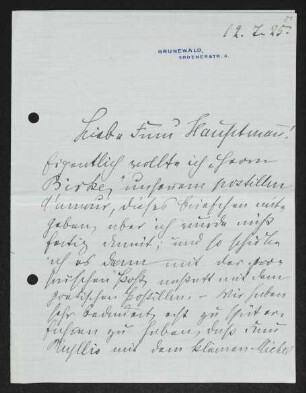 12.7.25.
GRUNEWALD,
Liebe Frau Hauptmann!
Eigentlich wollte ich Herrn
Birke, unserem postillon
d'amour, dieses Briefchen mit-
geben, aber ich wurde nicht
fertig damit; und so schicke
ich es denn mit der pro-
saischen Post anstatt mit dem
poetischen Postillon. - Wir haben
sehr bedauert, erst zu spät er-
fahren zu haben, daß Frau
mit dem kleinen